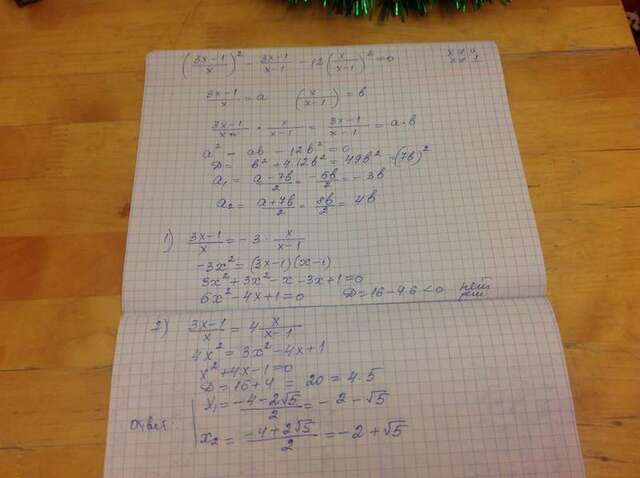 (3x-1/x)² - 3x-1/x-1 - 12(x/x-1)² = 0    x≠0
x≠1
3x-1/x = a    (x/x-1) = в
3x-1/x · x/x-1 = 3x-1/x-1 = a·в
a² - aв - 12в² = 0
D = в² + 4.12в² = 49в² = (7в)²
a₁ = a-7в/2 = -6в/2 = -3в
a₂ = a+7в/2 = 8в/2 = 4в
1) 3x-1/x = -3 · x/x-1
-3x² = (3x-1)(x-1)
3x² + 3x² - x - 3x + 1 = 0
6x² - 4x + 1 = 0    D = 16 - 4.6 < 0    нет реш
2) 3x-1/x = 4 x/x-1
4x² = 3x² - 4x + 1
x² + 4x - 1 = 0
D = 16 + 4 = 20 = 4·5
x₁ = -4-2√5/2 = -2 - √5
Ответ x₂ = -4+2√5/2 = -2 + √5